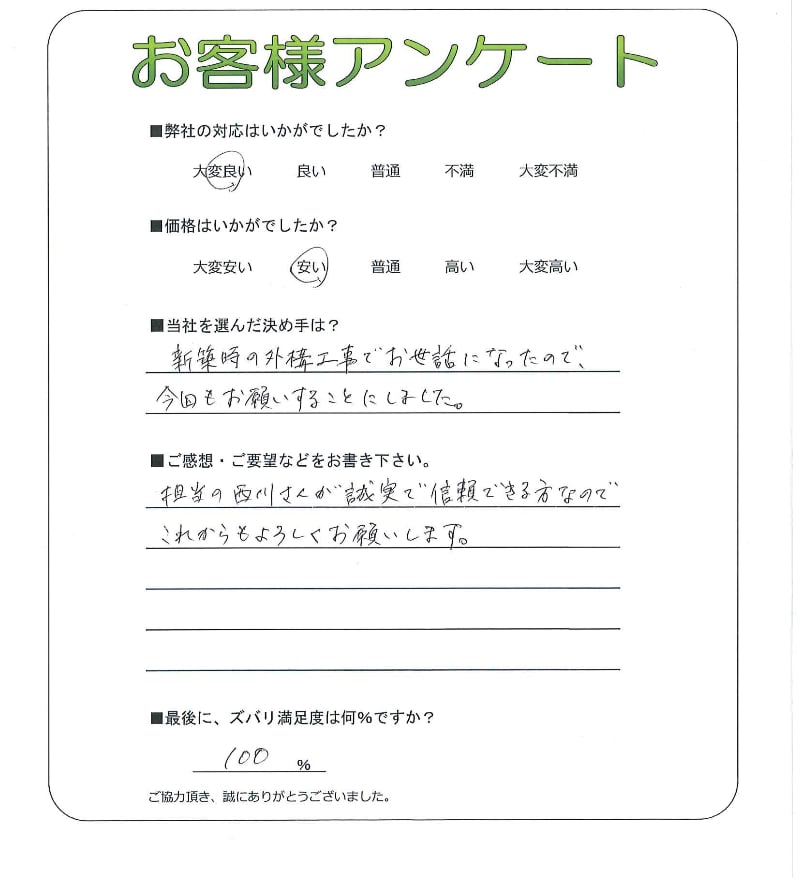 お客様アンケート
■弊社の対応はいかがでしたか？
大変良い 良い 普通 不満 大変不満
■価格はいかがでしたか？
大変安い 安い 普通 高い 大変高い
■当社を選んだ決め手は？
新築時の外構工事でお世話になったので、
今回もお願いすることにしました。
■ご感想・ご要望などをお書き下さい。
担当の西川さんが誠実で信頼できる方なので
これからもよろしくお願いします。
■最後に、ズバリ満足度は何%ですか？
100 %
ご協力頂き、誠にありがとうございました。